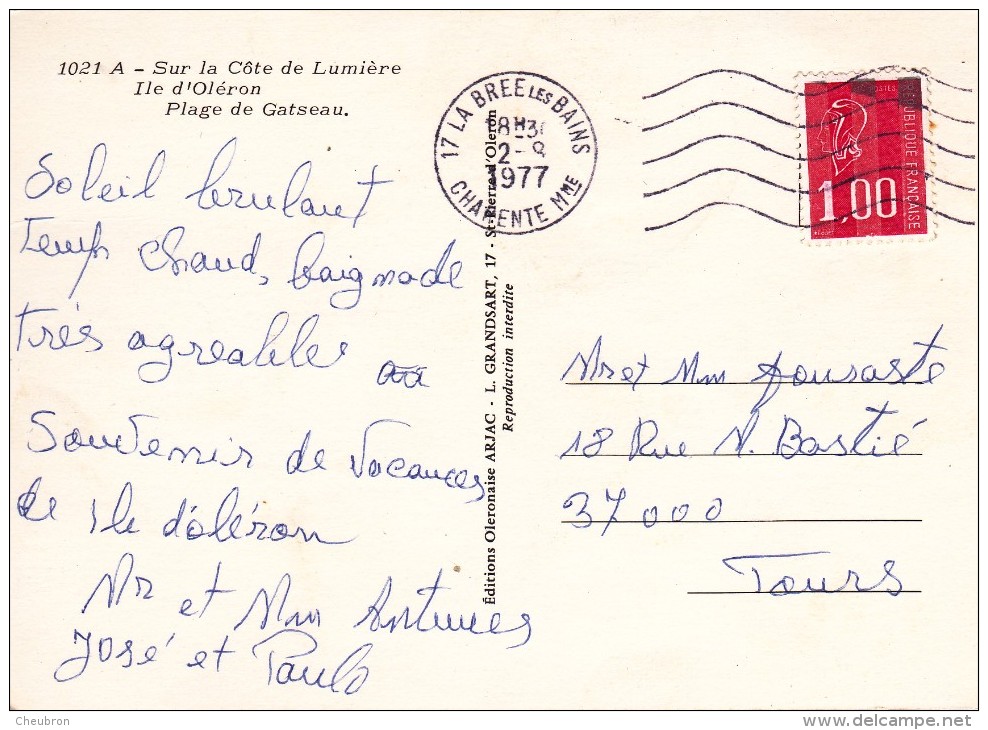 1021 A - Sur la Côte de Lumière
Ile d'Oléron
Plage de Gatseau.
17 LA BREE LES BAINS
18H30
2-8
1977
CHARENTE MME
POSTES
REPUBLIQUE FRANÇAISE
1,00
Soleil brulant
Temps Chaud, baignade
très agréable
Souvenir de Vacances
de Ile d'oléron
Mr et Mm Antunes
José et Paulo
Éditions Oleronaise ARJAC - L. GRANDSART, 17 - St-Pierre-d'Oleron
Reproduction interdite
Mr et Mm
18 Rue M. Bastié
37000
Tours
Cheubron
delcampe.net